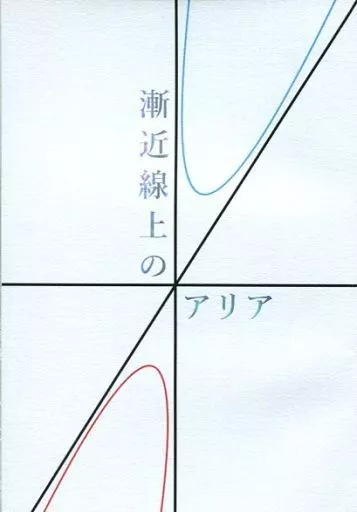 漸近線上の
アリア